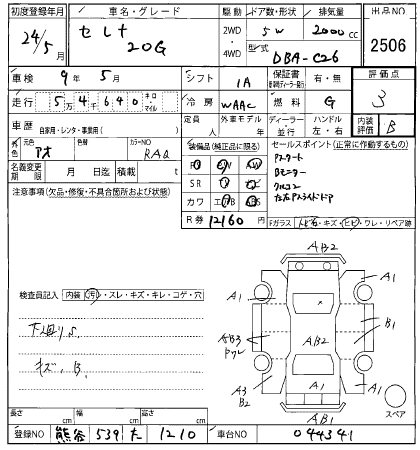 初度登録年月 車名・グレード 駆動 ドア数・形状 排気量 出品NO
24年5月 セレナ 20G 2WD・4WD 5W 2000cc 2506
型式 DBA-C26
車検 9年5月 シフト IA 保証書 有・無 評価点
走行 5万4千640 キロ・マイル 冷房 WAAC 燃料 G 3
車歴 自家用・レンタ・事業用( ) 定員 人 外車モデル 年 ディーラー 並行 ハンドル 左・右 内装評価 B
外色 元色 アオ 色替 カラーNO RAQ
装備品(純正品に限る) セールスポイント(正常に動作するもの)
名義変更期限 月 日迄 積載 t
SR
カワ エアB ABS
R券 12160円
アスタート
Bモニター
クルコン
左右Aスライドドア
注意事項(欠品・修復・不具合箇所および状態)
Fガラス トビ石・キズ・ヒビ・ワレ・リペア跡
検査員記入 内装 汚レ・スレ・キズ・キレ・コゲ・穴
下廻りS.
キズ、B.
AB2
A1 A1
AB3 AB2 B1
A3 B2 A1 A1
AB1
スペア
長さ cm 幅 cm 高さ cm
登録NO 熊谷 539 た 1210 車台NO 044341